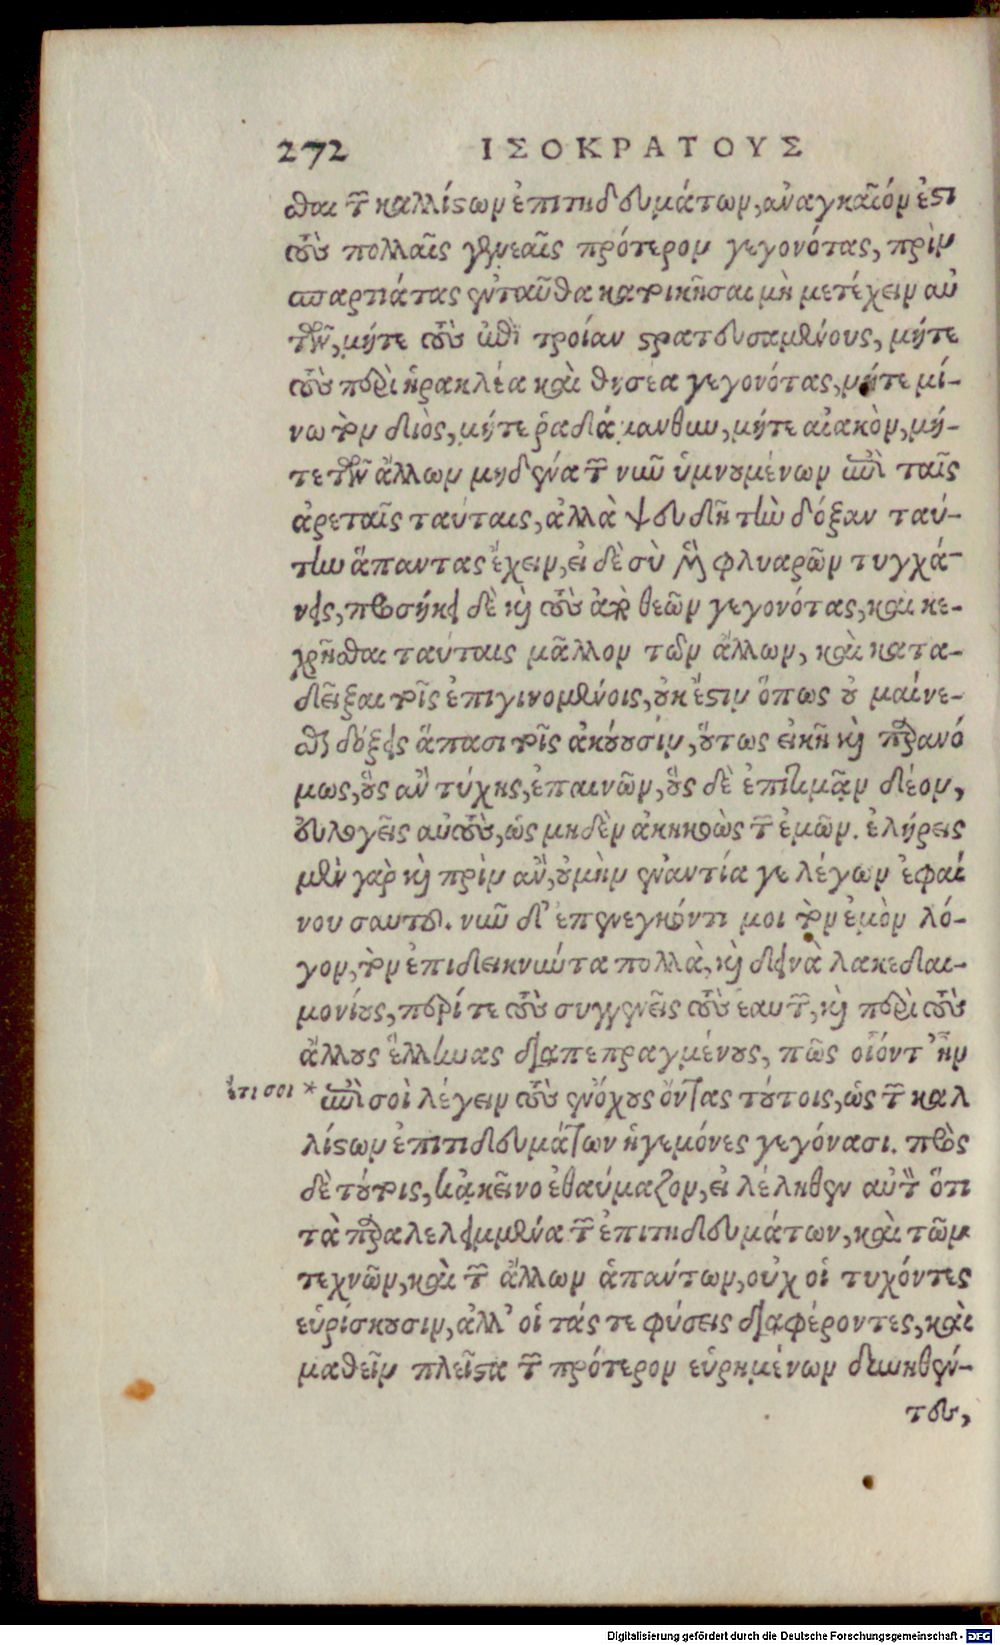 272 ΙΣΟΚΡΑΤΟΥΣ
σθαι τῶν καλλίστων ἐπιτηδευμάτων, ἀναγκαῖόν ἐστι
τοὺς πολλαῖς γενεαῖς πρότερον γεγονότας, πρὶν
σπαρτιάτας ἐνταῦθα κατοικῆσαι μὴ μετέχειν αὐ
τῶν, μήτε τοὺς ἐπὶ τροίαν στρατευσαμένους, μήτε
τοὺς περὶ ἡρακλέα καὶ θησέα γεγονότας, μήτε μί-
νω τὸν διὸς, μήτε ῥαδάμανθυν, μήτε αἰακὸν, μή-
τε τῶν ἄλλων μηδένα τῶν νῦν ὑμνουμένων ἐπὶ ταῖς
ἀρεταῖς ταύταις, ἀλλὰ ψευδῆ τὴν δόξαν ταύ-
την ἅπαντας ἔχειν, εἰ δὲ σὺ μὲν φλυαρῶν τυγχά-
νεις, προσήκει δὲ καὶ τοὺς ἀπὸ θεῶν γεγονότας, καὶ κε-
χρῆσθαι ταύταις μᾶλλον τῶν ἄλλων, καὶ κατα-
δεῖξαι τοῖς ἐπιγινομένοις, οὐκ ἔστιν ὅπως οὐ μαίνε-
σθαι δόξεις ἅπασι τοῖς ἀκούουσιν, οὕτως εἰκῆ καὶ παρανό
μως, οὓς ἂν τύχης, ἐπαινῶν, οὓς δὲ ἐπιτιμᾷν δέον,
εὐλογεῖς αὐτοὺς, ὡς μηδὲν ἀκηκοὼς τῶν ἐμῶν. ἐλήρεις
μὲν γὰρ καὶ πρὶν ἂν, οὐ μὴν ἐναντία γε λέγων ἐφαί
νου σαυτῷ. νῦν δ' ἐπενεγκόντι μοι τὸν ἐμὸν λό-
γον, τὸν ἐπιδεικνύντα πολλὰ, καὶ δεινὰ λακεδαι-
μονίους, περί τε τοὺς συγγενεῖς τοὺς ἑαυτῶν, καὶ περὶ τοὺς
ἄλλους ἕλληνας διαπεπραγμένους, πῶς οἷόντ' ἦν
ἔτι σοι * ἐπὶ σοὶ λέγειν τοὺς ἐνόχους ὄντας τούτοις, ὡς τῶν καλ
λίστων ἐπιτιδευμάτων ἡγεμόνες γεγόνασι. πρὸς
δὲ τούτοις, κἀκεῖνο ἐθαύμαζον, εἰ λέληθεν αὐτὸν ὅτι
τὰ παραλελειμμένα τῶν ἐπιτηδευμάτων, καὶ τῶν
τεχνῶν, καὶ τῶν ἄλλων ἁπάντων, οὐχ οἱ τυχόντες
εὑρίσκουσιν, ἀλλ' οἱ τάς τε φύσεις διαφέροντες, καὶ
μαθεῖν πλεῖστα τῶν πρότερον εὑρημένων δυνηθέν-
τες,
Digitalisierung gefördert durch die Deutsche Forschungsgemeinschaft - DFG